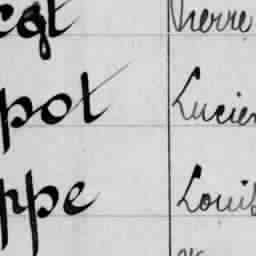 cqt Pierre
pot Lucien
ppe Louis